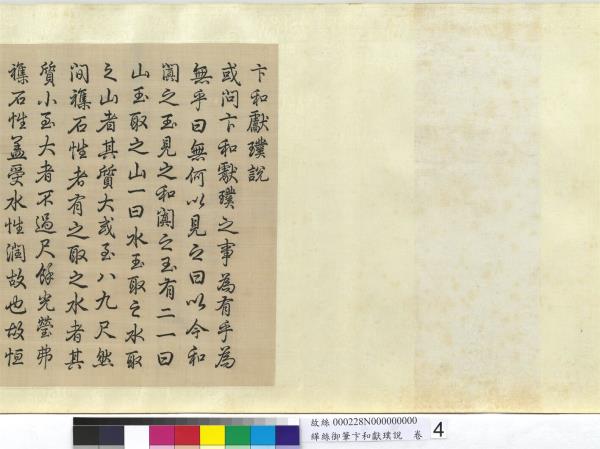 卞和獻璞說
或問卞和獻璞之事為有乎為
無乎曰無何以見之曰以今和
闐之玉見之和闐之玉有二一曰
山玉取之山一曰水玉取之水取
之山者其質大或至八九尺然
間襍石性者有之取之水者其
質小玉大者不過尺餘光瑩弗
襍石性蓋受水性潤故也故恒
故絲 000228N000000000
緙絲御筆卞和獻璞說 卷 4